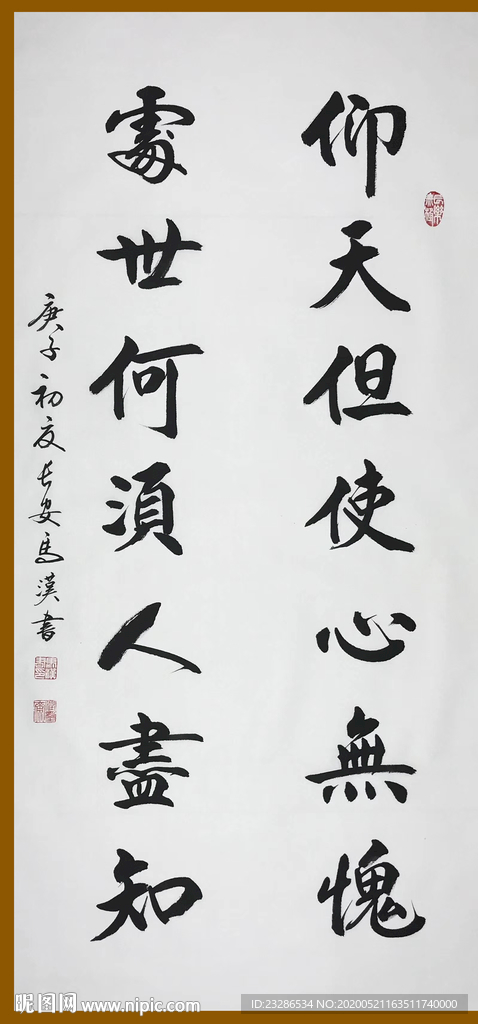 仰天但使心無愧
處世何須人盡知
庚子初夏長安馬漢書
昵图网 www.nipic.com
ID:23286534 NO:20200521163511740000